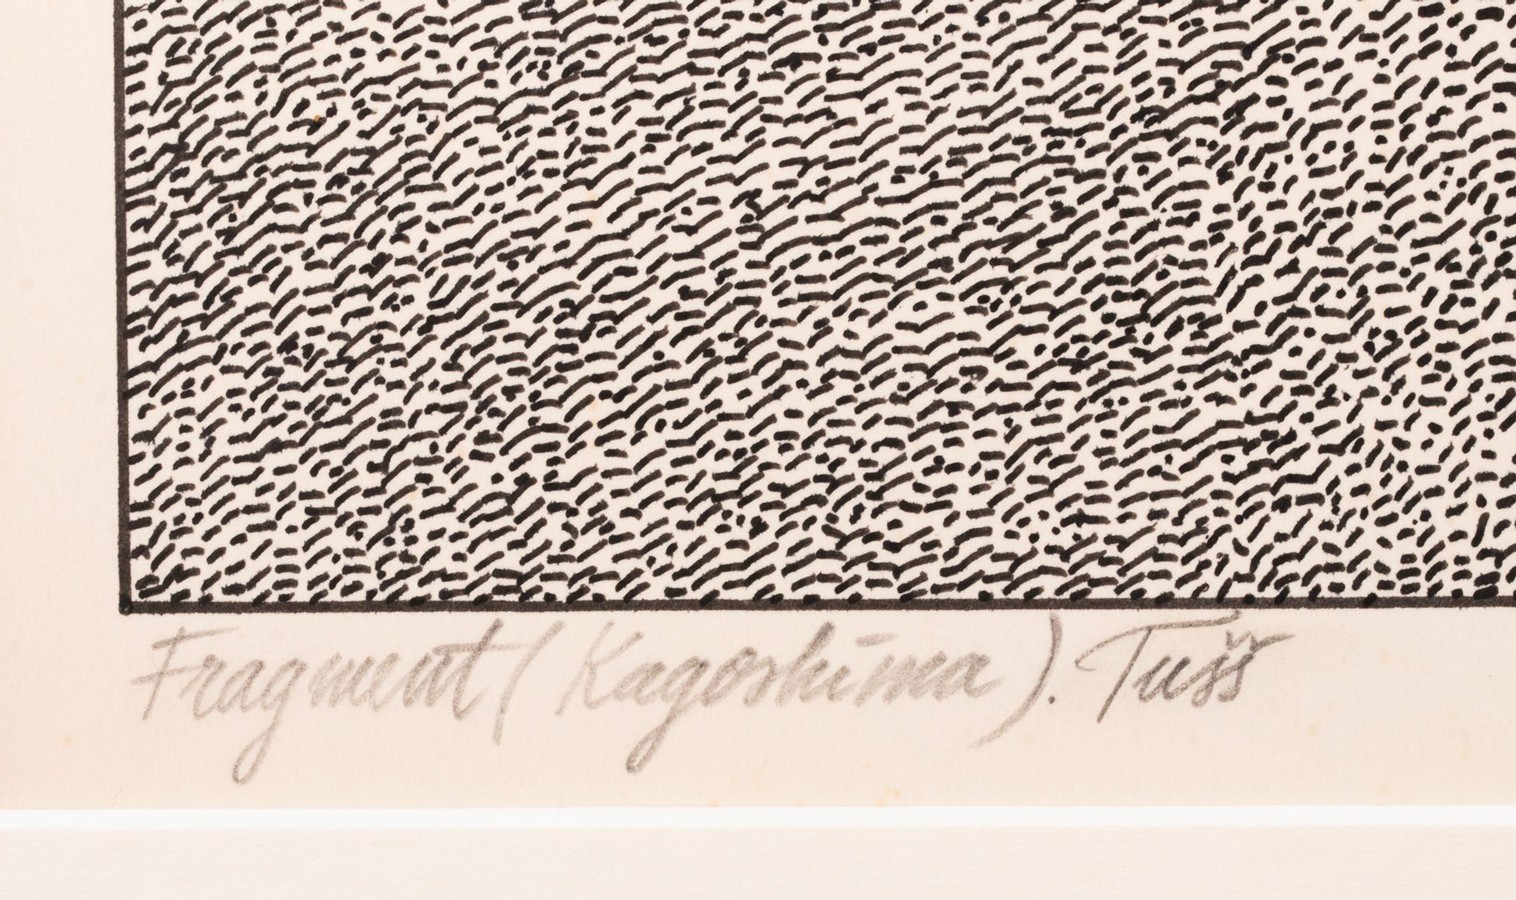 Fragment (Kagoshima). Tušš